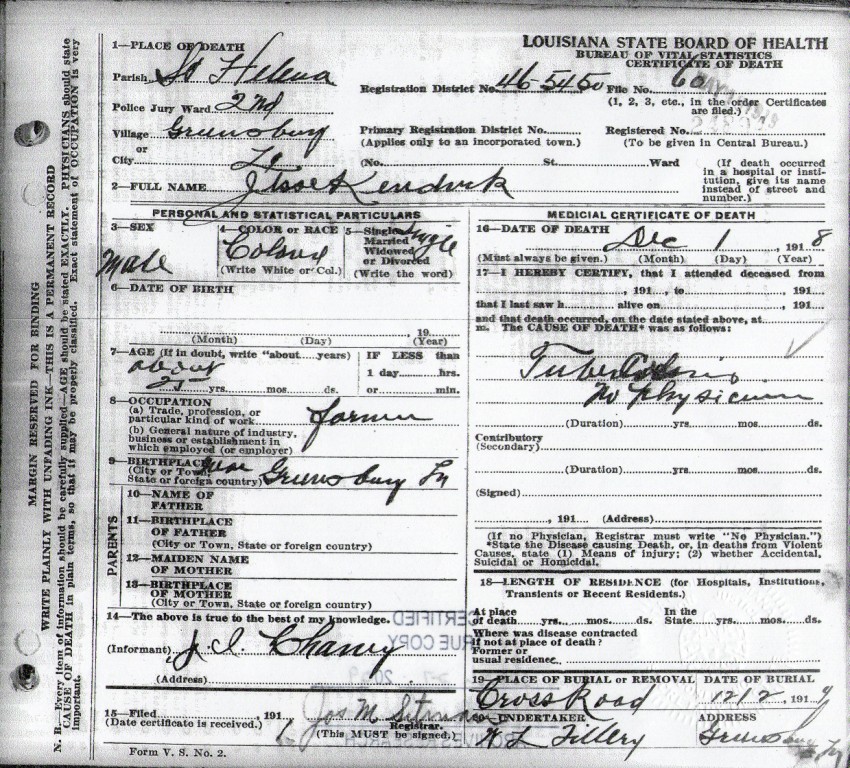 LOUISIANA STATE BOARD OF HEALTH
BUREAU OF VITAL STATISTICS
CERTIFICATE OF DEATH
MARGIN RESERVED FOR BINDING
WRITE PLAINLY WITH UNFADING INK—THIS IS A PERMANENT RECORD
N. B.—Every item of information should be carefully supplied—AGE should be stated EXACTLY. PHYSICIANS should state
CAUSE OF DEATH in plain terms, so that it may be properly classified. Exact statement of OCCUPATION is very
important.
1—PLACE OF DEATH
Parish St Helena
Police Jury Ward 2nd
Village Greensburg
or
City La
Registration District No. 46-5450 File No. 60
(1, 2, 3, etc., in the order Certificates
are filed.)
Primary Registration District No. Registered No.
(Applies only to an incorporated town.) (To be given in Central Bureau.)
(No. St. Ward (If death occurred
in a hospital or insti-
tution, give its name
instead of street and
number.)
2—FULL NAME Jesse Kendrick
PERSONAL AND STATISTICAL PARTICULARS
3—SEX
Male
4—COLOR or RACE
Colored
(Write White or Col.)
5—Single
Married
Widowed
or Divorced
Single
(Write the word)
6—DATE OF BIRTH
, 19
(Month) (Day) (Year)
7—AGE (If in doubt, write "about.....years)
about
25 yrs. mos. ds.
IF LESS than
1 day hrs.
or min.
8—OCCUPATION
(a) Trade, profession, or
particular kind of work farmer
(b) General nature of industry,
business or establishment in
which employed (or employer)
9—BIRTHPLACE
(City or Town,
State or foreign country) near Greensburg La
PARENTS
10—NAME OF
FATHER
11—BIRTHPLACE
OF FATHER
(City or Town, State or foreign country)
12—MAIDEN NAME
OF MOTHER
13—BIRTHPLACE
OF MOTHER
(City or Town, State or foreign country)
14—The above is true to the best of my knowledge.
(Informant) J. I. Chaney
(Address)
CERTIFIED
TRUE COPY
15—Filed , 191
(Date certificate is received.)
Jos M
Registrar.
(This MUST be signed.)
Form V. S. No. 2.
MEDICAL CERTIFICATE OF DEATH
16—DATE OF DEATH
Dec 1 , 1918
(Must always be given.) (Month) (Day) (Year)
17—I HEREBY CERTIFY, that I attended deceased from
, 191 , to , 191
that I last saw h alive on , 191
and that death occurred, on the date stated above, at
m. The CAUSE OF DEATH* was as follows:
Tuberculosis
No Physician
(Duration) yrs. mos. ds.
Contributory
(Secondary)
(Duration) yrs. mos. ds.
(Signed)
, 191 (Address)
(If no Physician, Registrar must write "No Physician.")
*State the Disease causing Death, or, in deaths from Violent
Causes, state (1) Means of injury; (2) whether Accidental,
Suicidal or Homicidal.
18—LENGTH OF RESIDENCE (for Hospitals, Institutions,
Transients or Recent Residents.)
At place In the
of death yrs. mos. ds. State yrs. mos. ds.
Where was disease contracted
if not at place of death?
Former or
usual residence
19—PLACE OF BURIAL or REMOVAL DATE OF BURIAL
Cross Road 12/2 , 191
20—UNDERTAKER ADDRESS
Greensburg La